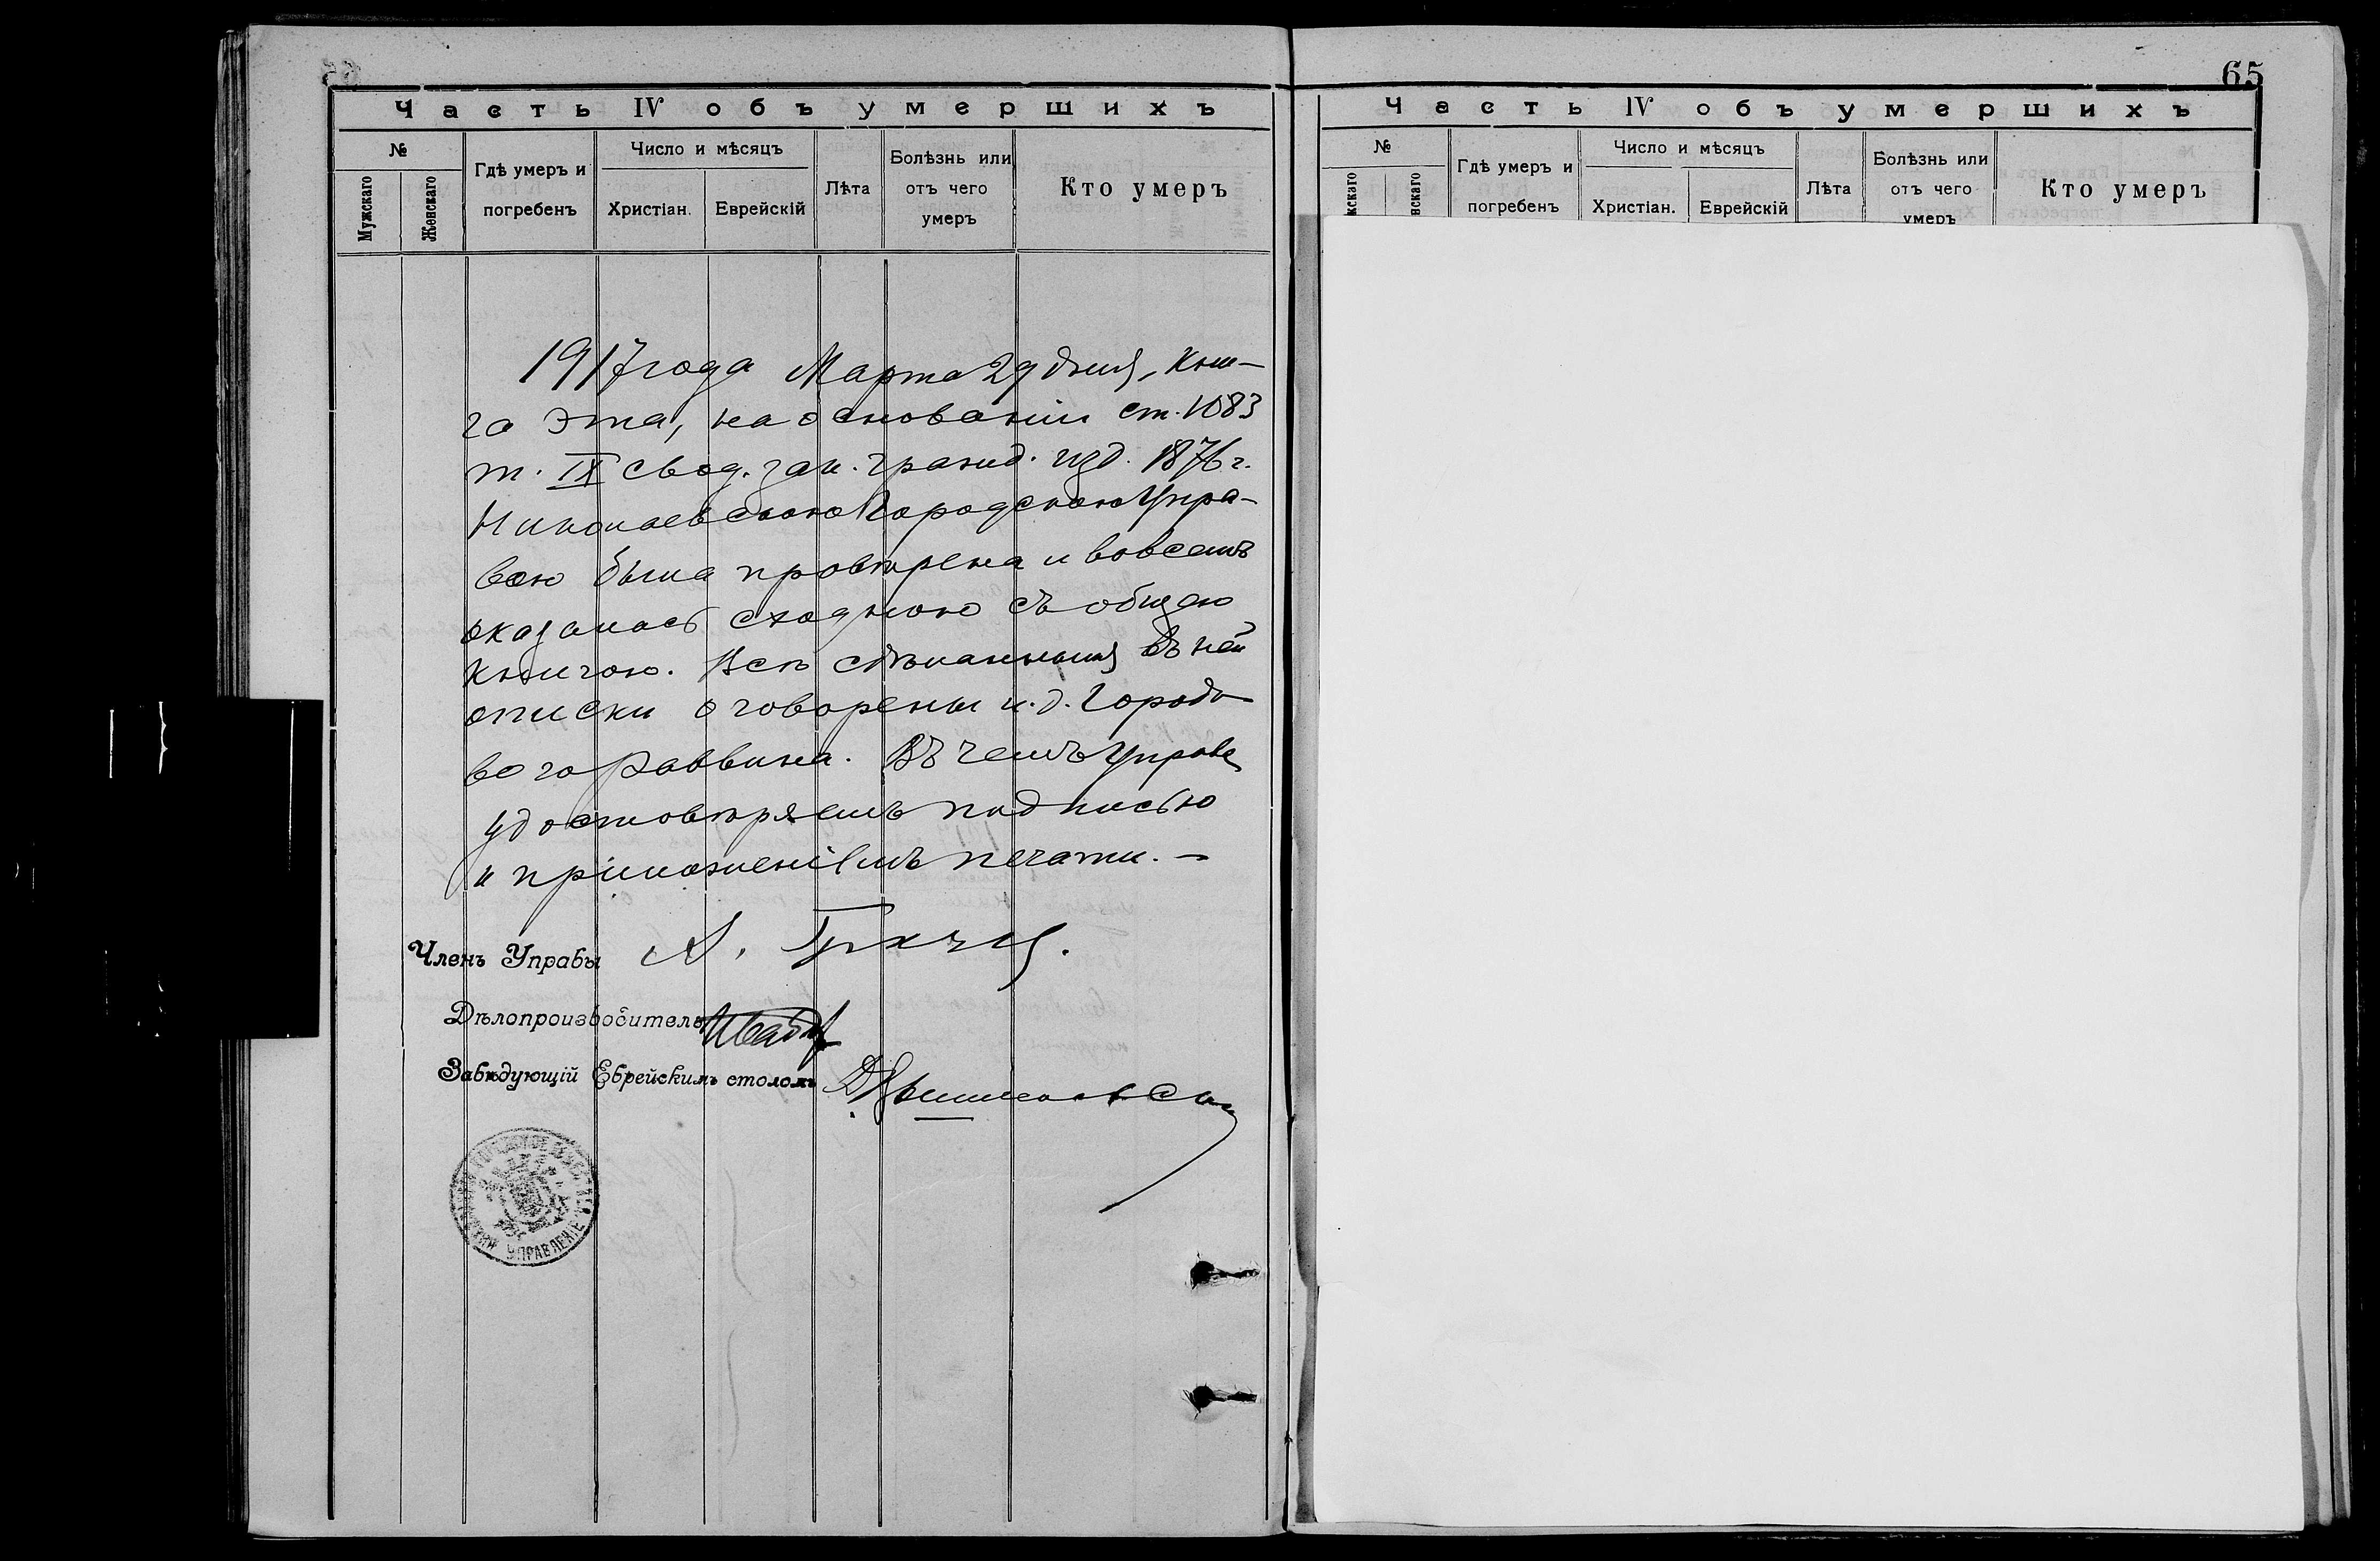 65
Часть IV объ умершихъ
№
Мужскаго
Женскаго
Гдѣ умеръ и погребенъ
Число и мѣсяцъ
Христіан.
Еврейскій
Лѣта
Болѣзнь или отъ чего умеръ
Кто умеръ
1917 года Марта 29 дня, кни-
га эта, на основаніи ст. 1083
т. IX свод. зак. гражд. изд. 1876 г.
Николаевскою Городскою Упра-
вою была провѣрена и во всемъ
оказалась сходною съ общею
книгою. Всѣ сдѣланныя въ ней
описки оговорены и. д. Городо-
вого Раввина. Въ чемъ Управа
удостовѣряетъ подписью
и приложеніемъ печати. —
Членъ Управы
Дѣлопроизводитель
Завѣдующій Еврейскимъ столомъ
УПРАВЛЕНІЕ
65
Часть IV объ умершихъ
№
кскаго
нскаго
Гдѣ умеръ и погребенъ
Число и мѣсяцъ
Христіан.
Еврейскій
Лѣта
Болѣзнь или отъ чего умеръ
Кто умеръ